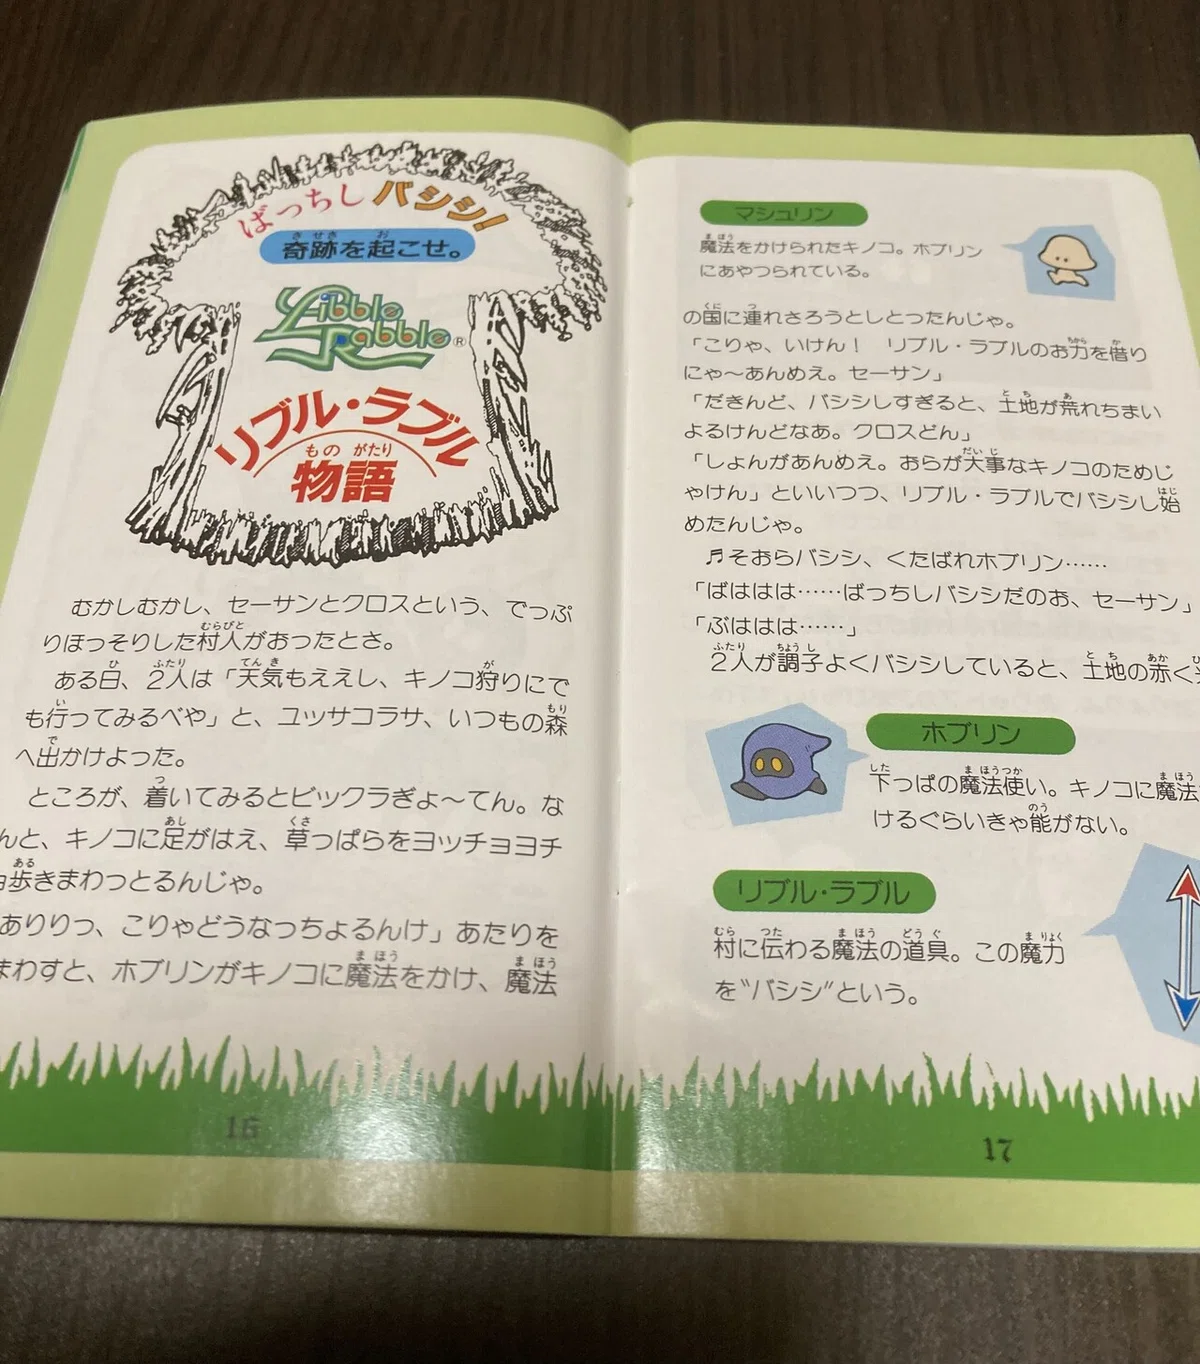 ばっちしバシシ!
奇跡を起こせ。
Libble Rabble®
リブル・ラブル
物語
むかしむかし、セーサンとクロスという、でっぷ
りほっそりした村人がおったとさ。
ある日、2人は「天気もええし、キノコ狩りにで
も行ってみるべや」と、ユッサコラサ、いつもの森
へ出かけよった。
ところが、着いてみるとビックラぎょ〜てん。な
んと、キノコに足がはえ、草っぱらをヨッチョヨチ
歩きまわっとるんじゃ。
ありりっ、こりゃどうなっちょるんけ」あたりを
まわすと、ホブリンがキノコに魔法をかけ、魔法
16
マシュリン
魔法をかけられたキノコ。ホブリン
にあやつられている。
の国に連れさろうとしとったんじゃ。
「こりゃ、いけん！　リブル・ラブルのお力を借り
にゃ〜あんめえ。セーサン」
「だきんど、バシシしすぎると、土地が荒れちまい
よるけんどなあ。クロスどん」
「しょんがあんめえ。おらが大事なキノコのためじ
ゃけん」といいつつ、リブル・ラブルでバシシし始
めたんじゃ。
♬そおらバシシ、くたばれホブリン……
「ばははは……ばっちしバシシだのお、セーサン」
「ぶははは……」
2人が調子よくバシシしていると、土地の赤く
ホブリン
下っぱの魔法使い。キノコに魔法
けるぐらいきゃ能がない。
リブル・ラブル
村に伝わる魔法の道具。この魔力
を"バシシ"という。
17